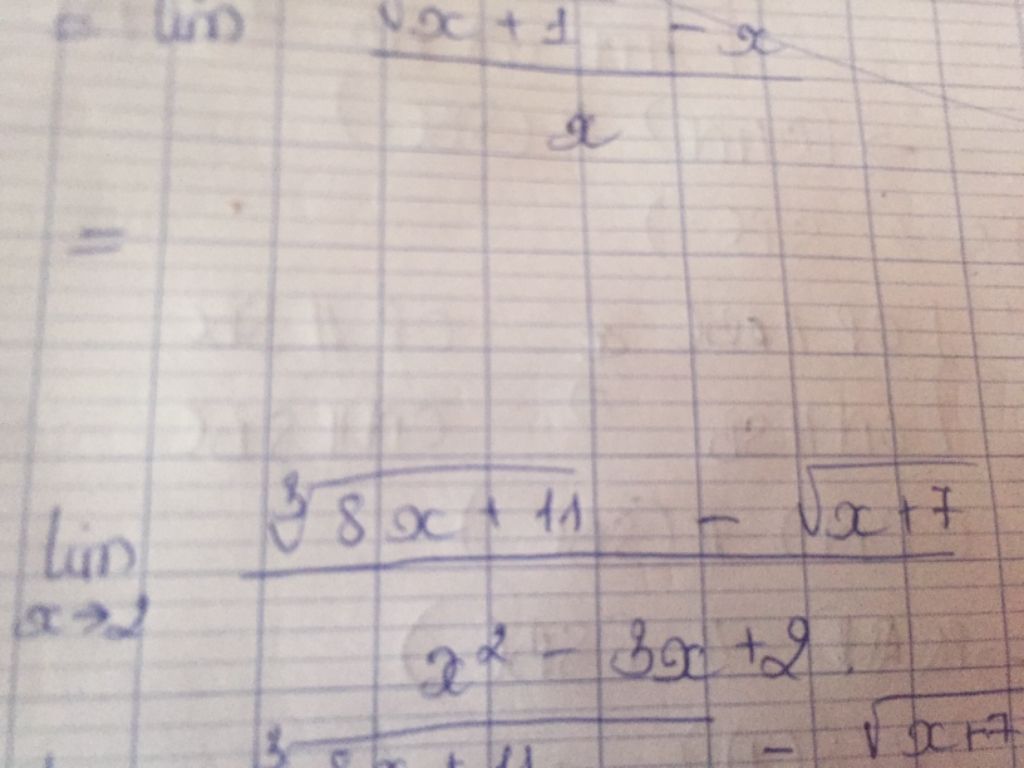 = lim (√x + 1 - x) / x
=
lim x→2 (∛(8x + 11) - √(x+7)) / (x² - 3x + 2)
∛(8x + 11) - √(x+7)